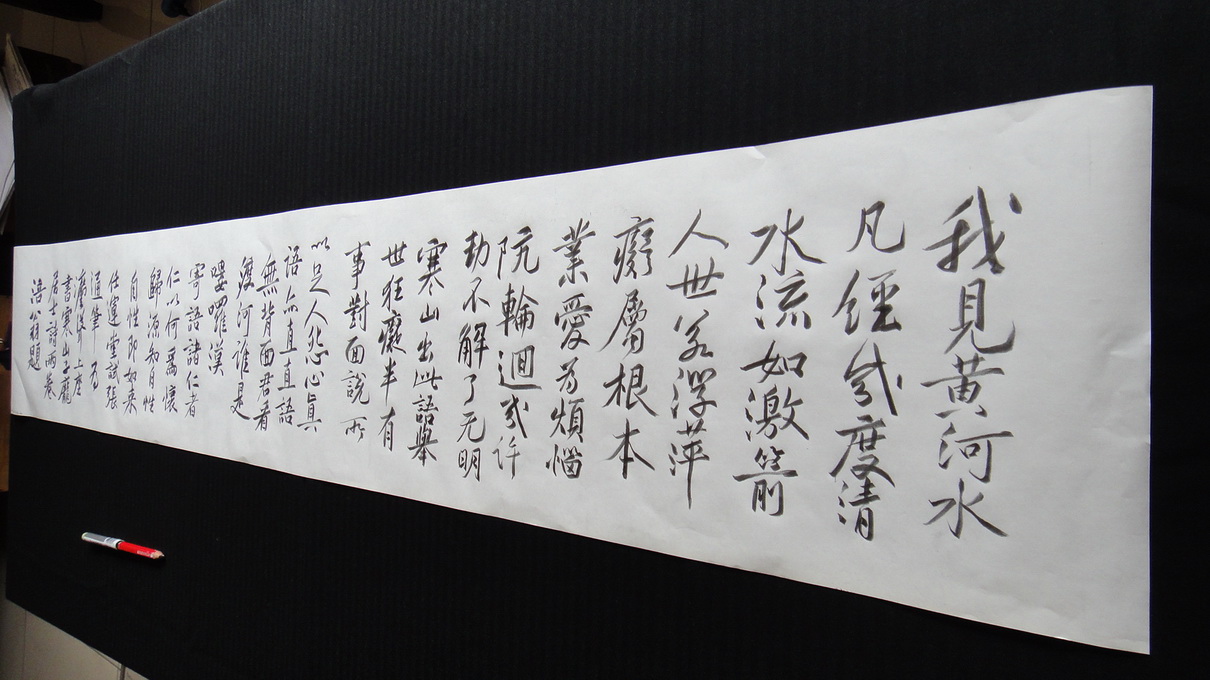 我見黃河水
凡經幾度清
水流如激箭
人世若浮萍
癡屬根本
業愛為煩惱
阬輪迴幾許
劫不解了无明
寒山出此語舉
世狂癡半有
事對面說所
以足人怨心真
語亦直直語
無背面君看
渡河誰是
嘍囉漢
寄語諸仁者
仁以何為懷
歸源知自性
自性即如來
任運堂試張
通筆為
上座
書寒山子龐
居士詩兩卷
涪翁題